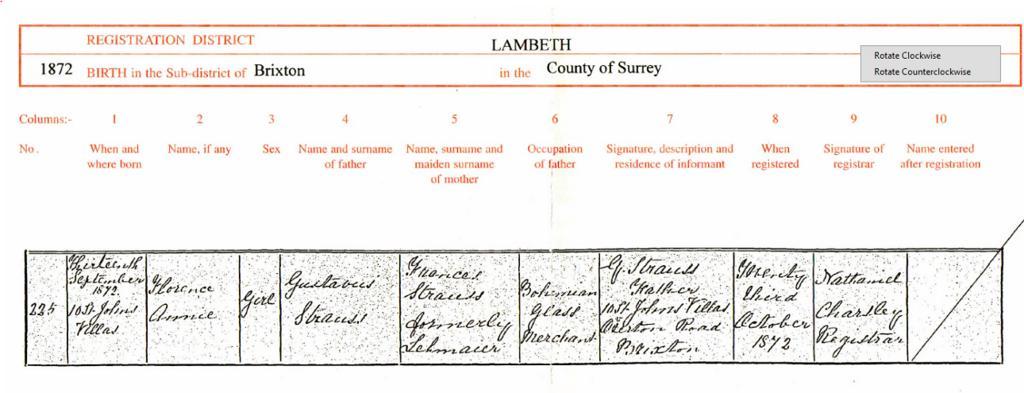 REGISTRATION DISTRICT LAMBETH
Rotate Clockwise
1872 BIRTH in the Sub-district of Brixton in the County of Surrey
Rotate Counterclockwise
Columns:- 1 2 3 4 5 6 7 8 9 10
No. When and where born Name, if any Sex Name and surname of father Name, surname and maiden surname of mother Occupation of father Signature, description and residence of informant When registered Signature of registrar Name entered after registration
225
Thirteenth
September
1872
10 St. Johns
Villas
Florence
Annie
Girl
Gustavus
Strauss
Frances
Strauss
formerly
Lehmaier
Bohemian
Glass
Merchant
G. Strauss
Father
10 St. Johns Villas
Road
Brixton
Twenty
third
October
1872
Nathaniel
Charsley
Registrar